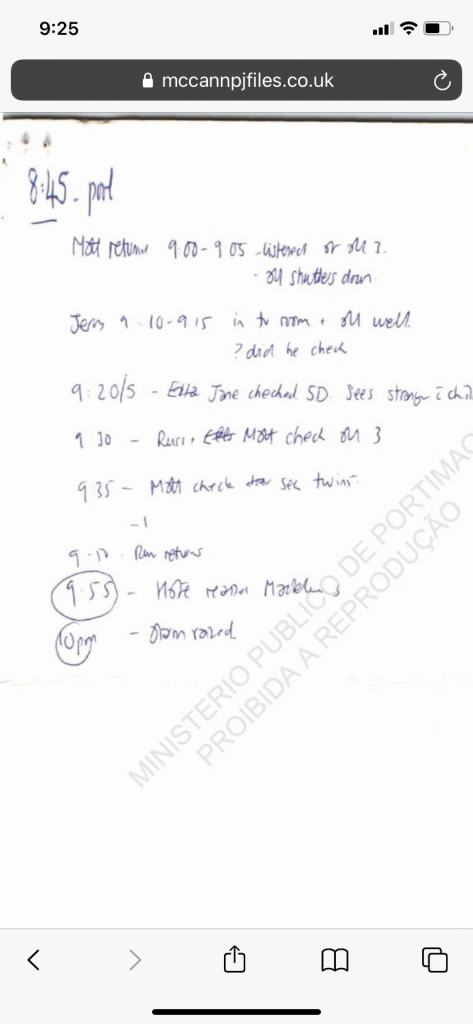 9:25
mccannpjfiles.co.uk
8:45 - pool
Matt returns 9.00 - 9.05 - listened at all 3.
- all shutters down.
Jerry 9.10-9.15 in tv room + all well.
? did he check
9:20/5 - Ella Jane checked 5D. Sees stranger
9.30 - Russ + Ella Matt check all 3
9.35 - Matt check see twins.
- 1
Russ returns
9.55 -
10pm - Alarm raised.
MINISTERIO PUBLICO DE PORTIMAO
PROIBIDA A REPRODUÇÃO